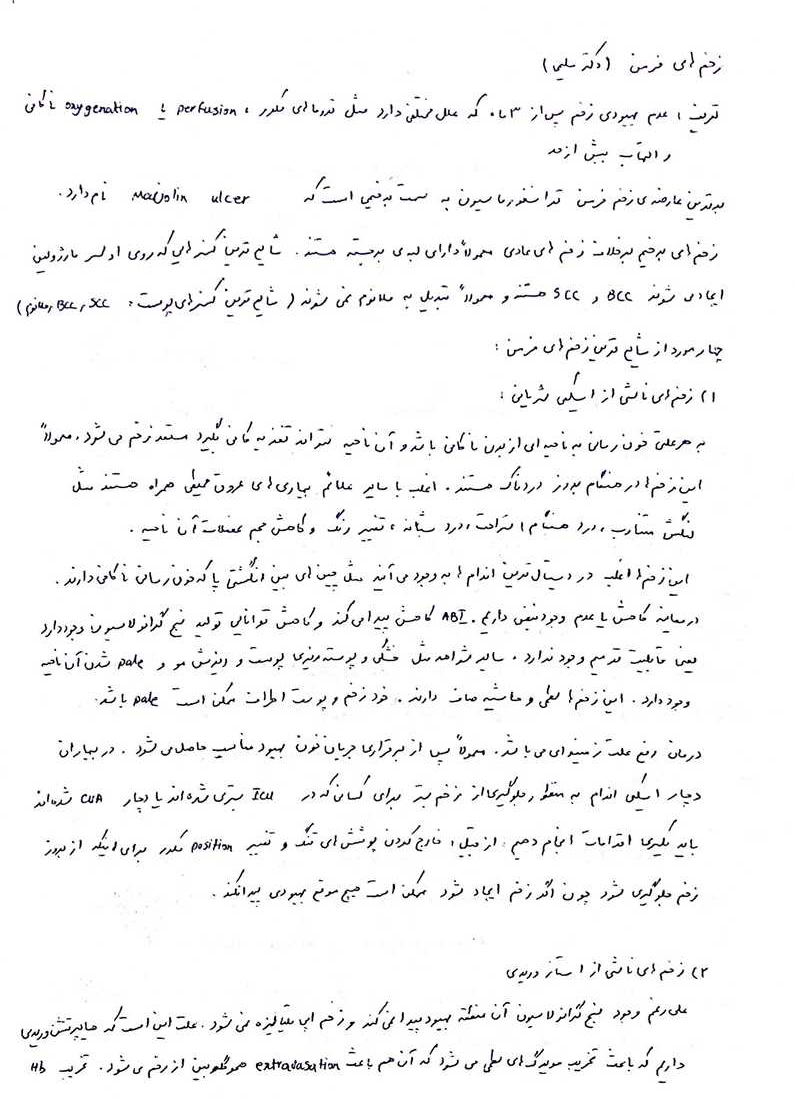 زخم های مزمن (دکتر سلیمی)
تعریف: عدم بهبودی زخم پس از ۳ ماه که علل مختلفی دارد مثل تروماهای مکرر، perfusion یا oxygenation ناکافی
و التهاب بیش از حد
بدترین عارضه ی زخم مزمن ترانسفورماسیون به سمت بدخیمی است که Marjolin ulcer نام دارد.
زخم های بدخیم برخلاف زخم های عادی معمولاً دارای لبه ی برجسته هستند. شایع ترین کنسرهایی که روی اولسر مارژولین
ایجاد می شوند BCC و SCC هستند و معمولاً تبدیل به ملانوم نمی شوند (شایع ترین کنسرهای پوست: BCC، SCC، ملانوم)
چهار مورد از شایع ترین زخم های مزمن:
۱) زخم های ناشی از ایسکمی شریانی:
به هر علتی خون رسانی به ناحیه ای از بدن ناکافی باشد و آن ناحیه نتواند تغذیه کافی بگیرد مستعد زخم می شود. معمولاً
این زخم ها در هنگام بروز دردناک هستند. اغلب با سایر علائم بیماری های عروق محیطی همراه هستند مثل
لنگش متناوب، درد هنگام استراحت، درد شبانه، تغییر رنگ و کاهش حجم عضلات آن ناحیه.
این زخم ها اغلب در دیستال ترین اندام ها به وجود می آیند مثل چین های بین انگشتی پا که خون رسانی ناکافی دارند.
در معاینه کاهش یا عدم وجود نبض داریم. ABI کاهش پیدا می کند و کاهش توانایی تولید نسج گرانولاسیون وجود دارد
یعنی قابلیت ترمیم وجود ندارد. سایر شواهد مثل خشکی و پوسته ریزی پوست و ریزش مو و pale شدن آن ناحیه
وجود دارد. این زخم ها سطحی و حاشیه صاف دارند. خود زخم و پوست اطراف ممکن است pale باشد.
درمان رفع علت زمینه ای می باشد. معمولاً پس از برقراری جریان خون بهبود مناسب حاصل می شود. در بیماران
دچار ایسکمی اندام به منظور جلوگیری از زخم بستر برای کسانی که در ICU بستری شده اند یا دچار CVA شده اند
باید یکسری اقدامات انجام دهیم: از قبیل: خارج کردن پوشش های تنگ و تغییر position مکرر برای اینکه از بروز
زخم جلوگیری شود چون اگر زخم ایجاد شود ممکن است هیچ موقع بهبودی پیدا نکند.
۲) زخم های ناشی از استاز وریدی
علی رغم وجود نسج گرانولاسیون آن منطقه بهبود پیدا نمی کند و زخم اپی تلیالیزه نمی شود. علت این است که هایپرتنشن وریدی
داریم که باعث تخریب مویرگ های سطحی می شود که آن هم باعث extravasation هموگلوبین از رخم می شود. تخریب Hb